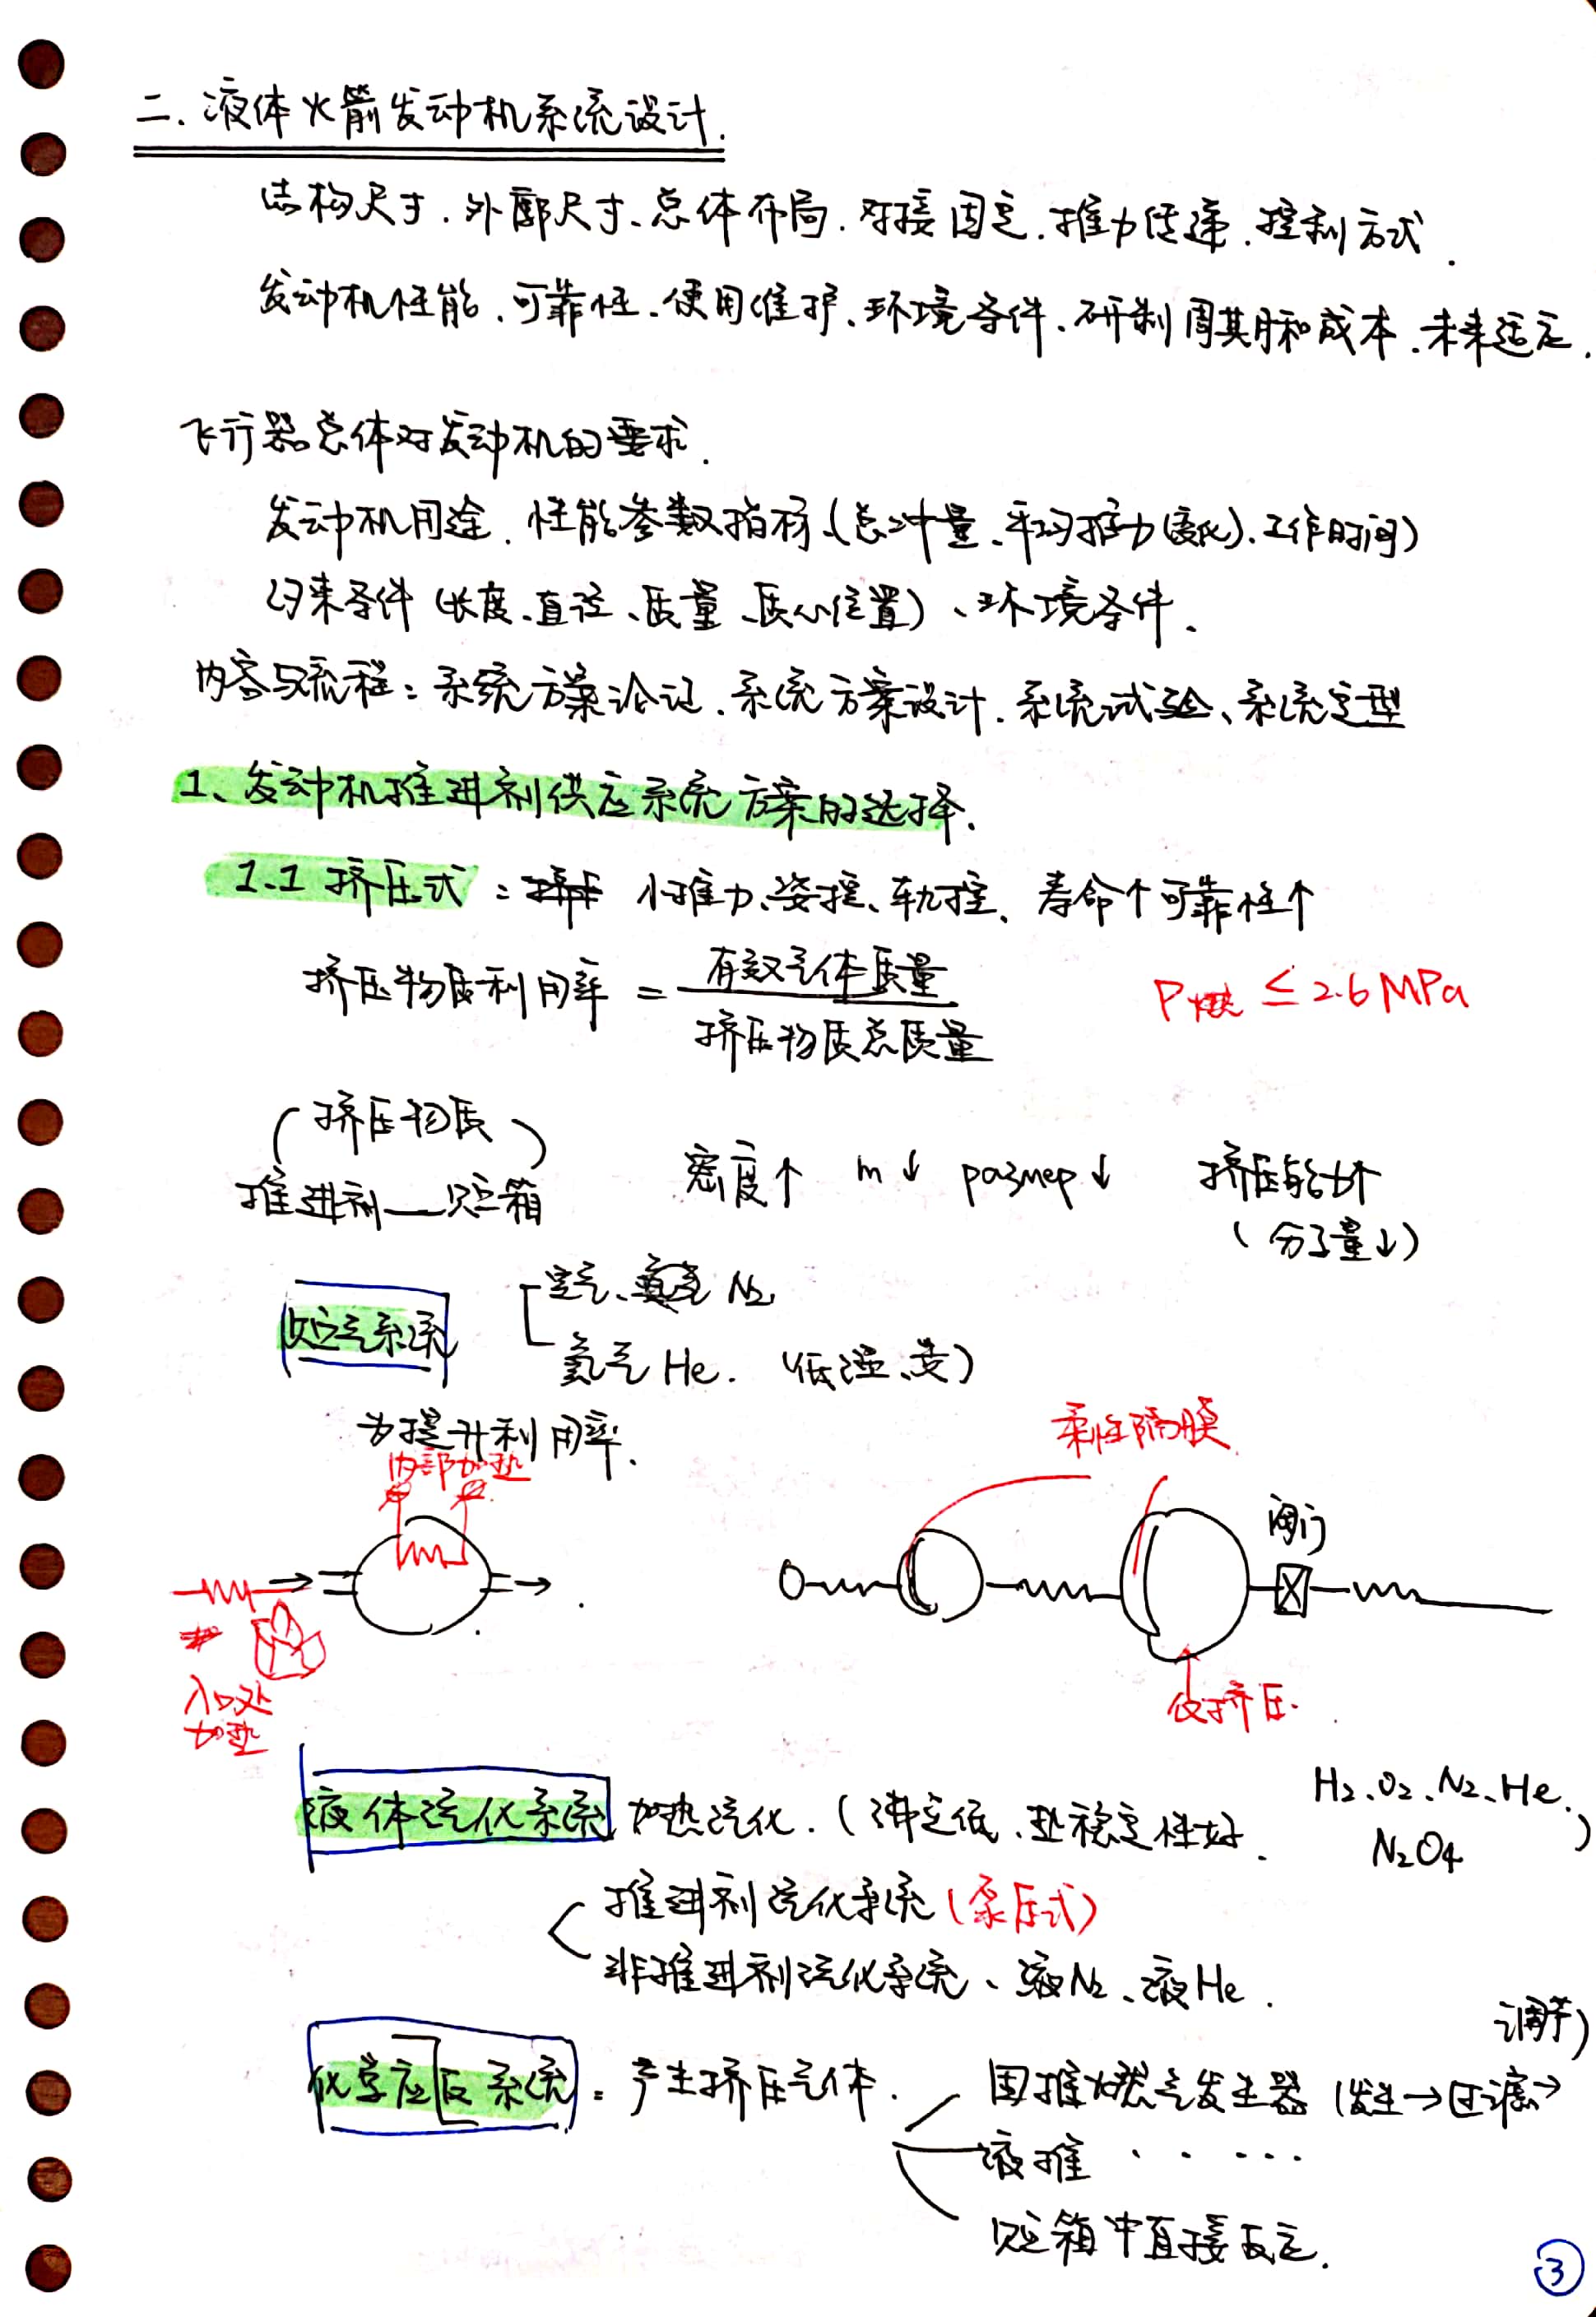 二. 液体火箭发动机系统设计.
结构尺寸. 外部尺寸、总体布局. 对接固定. 推力传递. 控制方式.
发动机性能. 可靠性. 使用维护、环境条件. 研制周期和成本. 未来适应.
飞行器总体对发动机的要求.
发动机用途. 性能参数指标 (总冲量、平均推力(变化)、工作时间)
约束条件 (长度、直径、质量、质心位置)、环境条件.
内容与流程: 系统方案论证. 系统方案设计. 系统试验、系统定型
1、发动机推进剂供应系统方案的选择.
1.1 挤压式: 小推力、姿控、轨控、寿命↑可靠性↑
挤压物质利用率 = 有效气体质量
挤压物质总质量
P燃 ≤ 2.6 MPa
(挤压物质)
推进剂——贮箱
密度↑ m↓ размер↓ 挤压能力↑
(分子量↓)
贮气系统
空气、氮气 N₂
氦气 He. (低温、贵)
为提升利用率.
内部加热
柔性隔膜
阀门
入口处
加热
仅挤压.
液体汽化系统 加热汽化. (沸点低、热稳定性好. H₂、O₂、N₂、He.
N₂O₄ )
推进剂汽化系统 (泵压式)
非推进剂汽化系统、液N₂、液He.
化学反应系统: 产生挤压气体.
固推燃气发生器 (发生→过滤→
调节)
液推 · · · · ·
贮箱中直接反应.
③